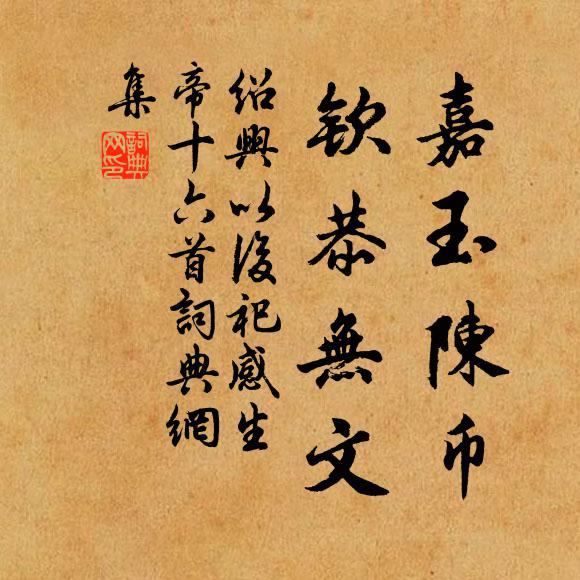 嘉玉陳币
欽恭無文
紹興以後祀感生
帝十六首詞典網
集
詞典
网印